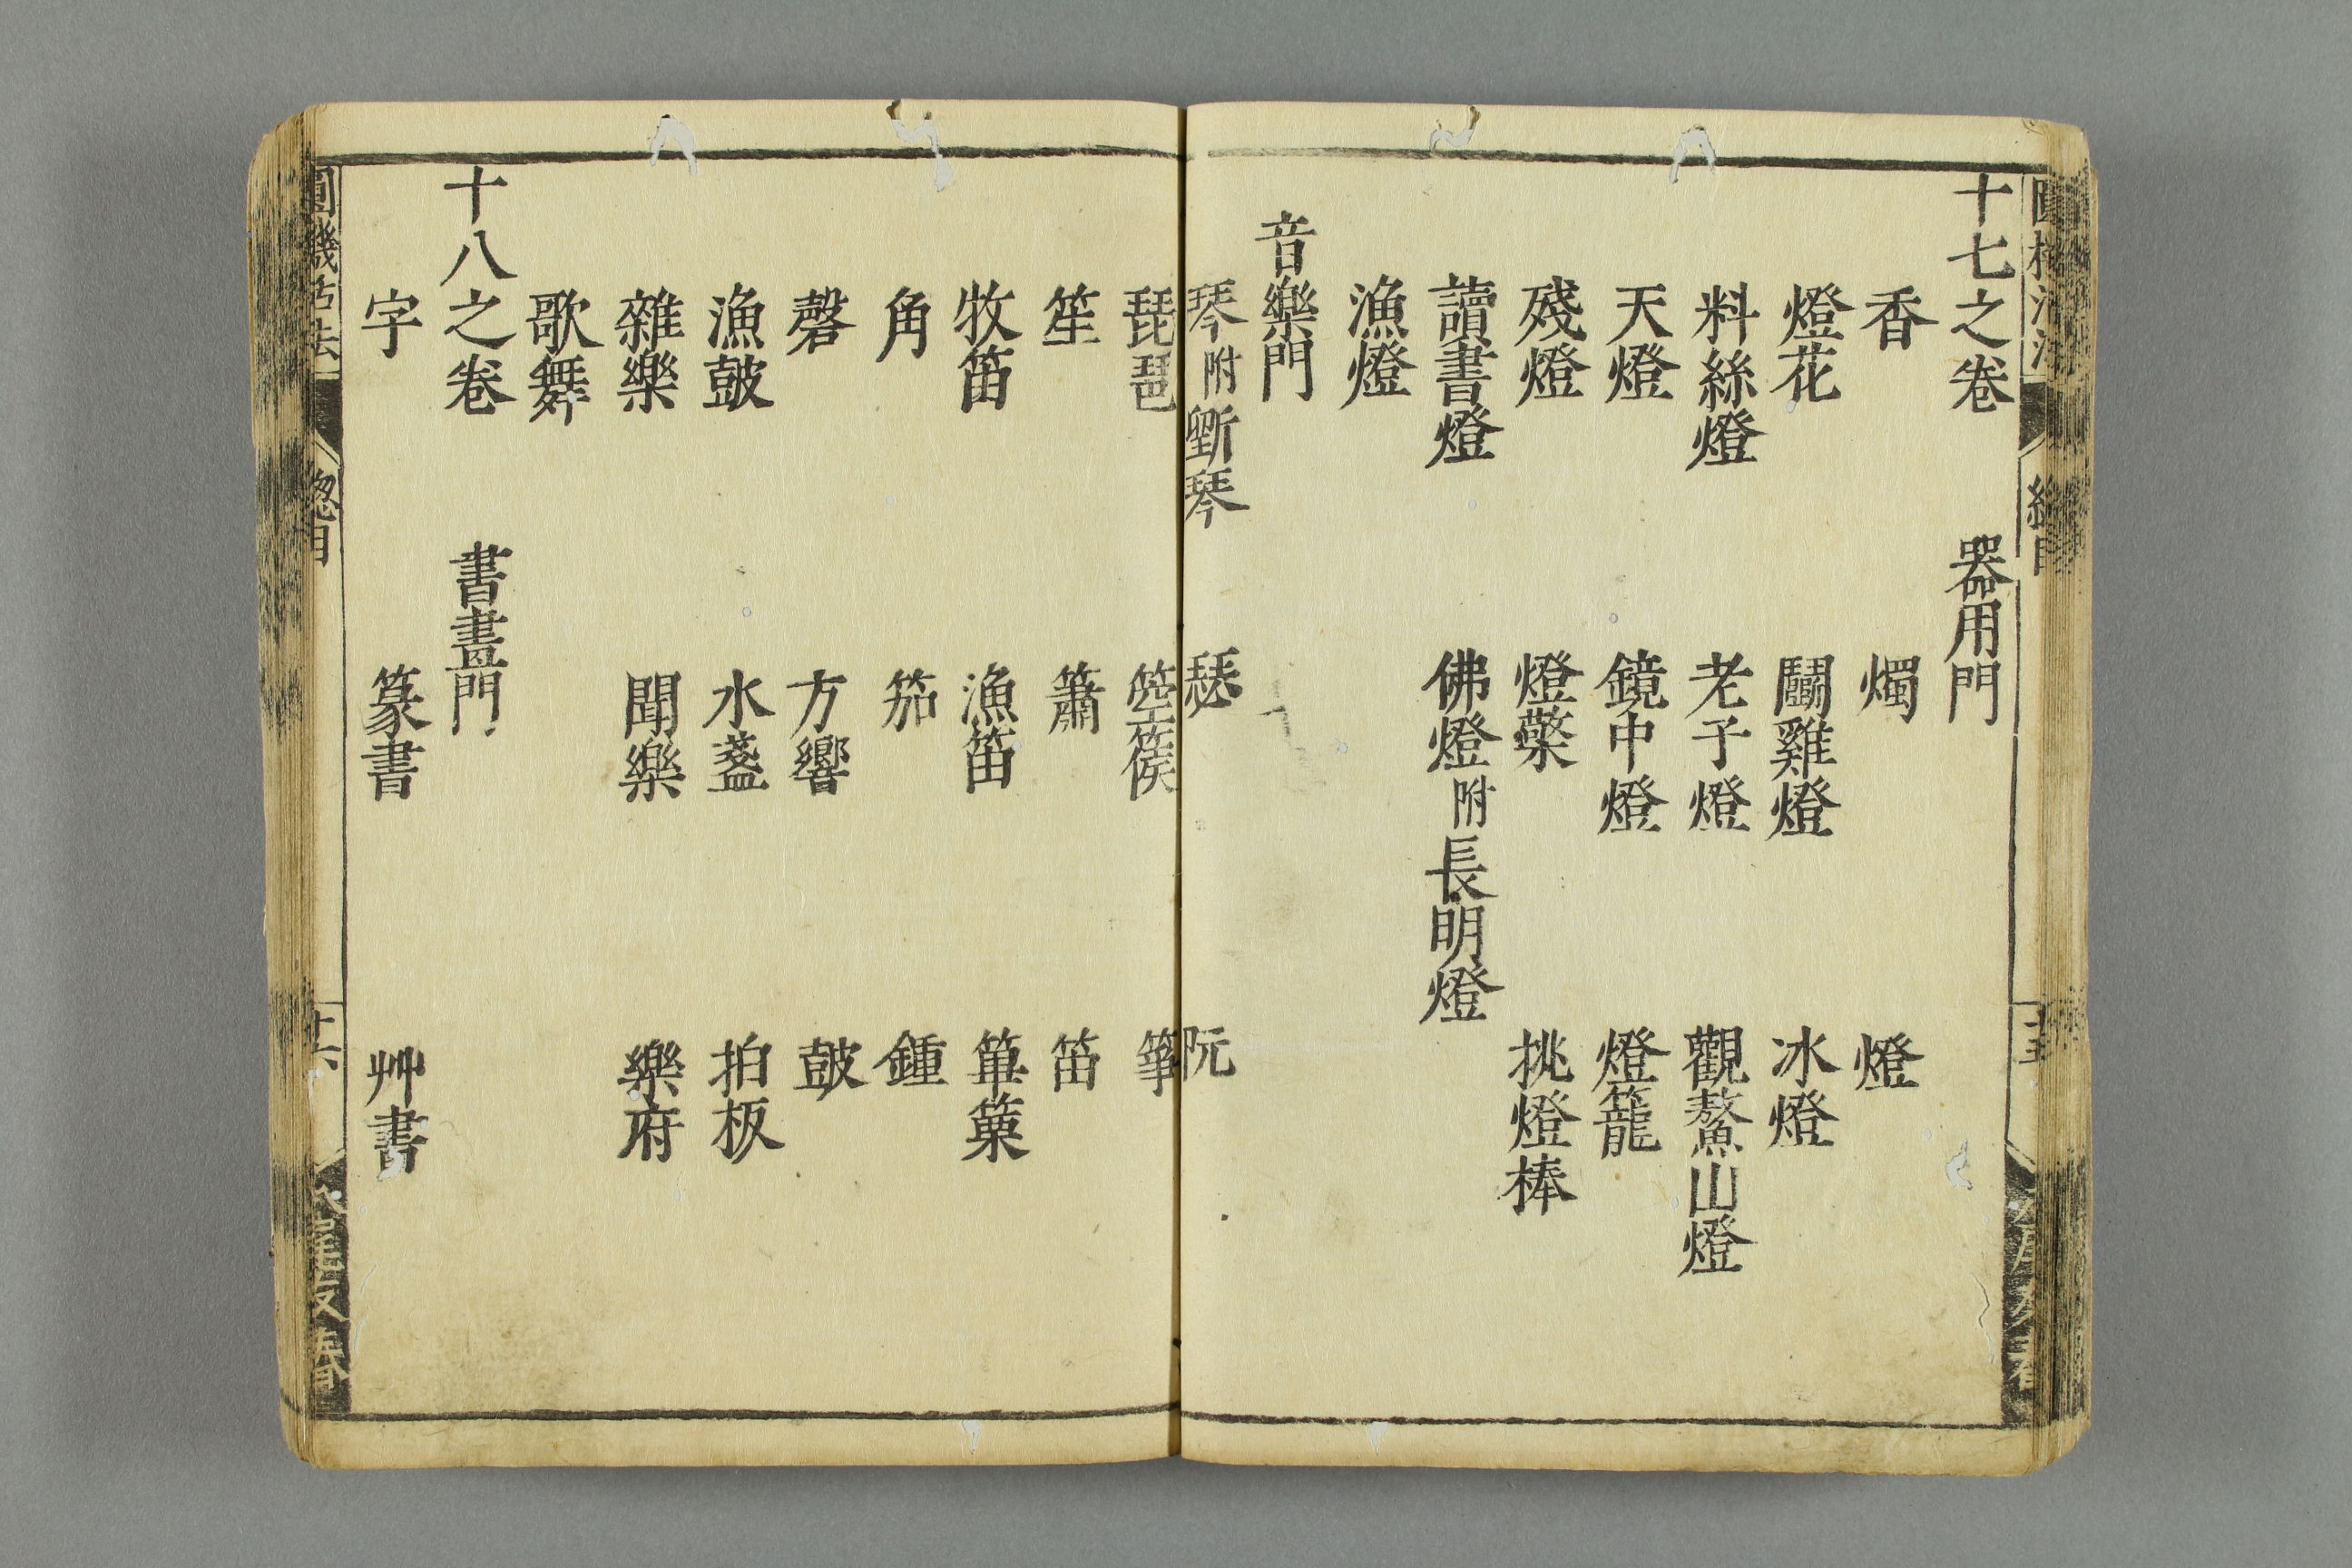 十七之卷 器用門
香 燭 燈
燈花 鬭雞燈 冰燈
料絲燈 老子燈 觀鰲山燈
天燈 鏡中燈 燈籠
殘燈 燈檠 挑燈棒
讀書燈 佛燈附長明燈
漁燈
音樂門
琴附斲琴 瑟 阮
琵琶 箜篌 箏
笙 簫 笛
牧笛 漁笛 篳篥
角 笳 鍾
磬 方響 鼓
漁鼓 水盞 拍板
雜樂 聞樂 樂府
歌舞
十八之卷 書畫門
字 篆書 艸書
圓機活法 總目 十六